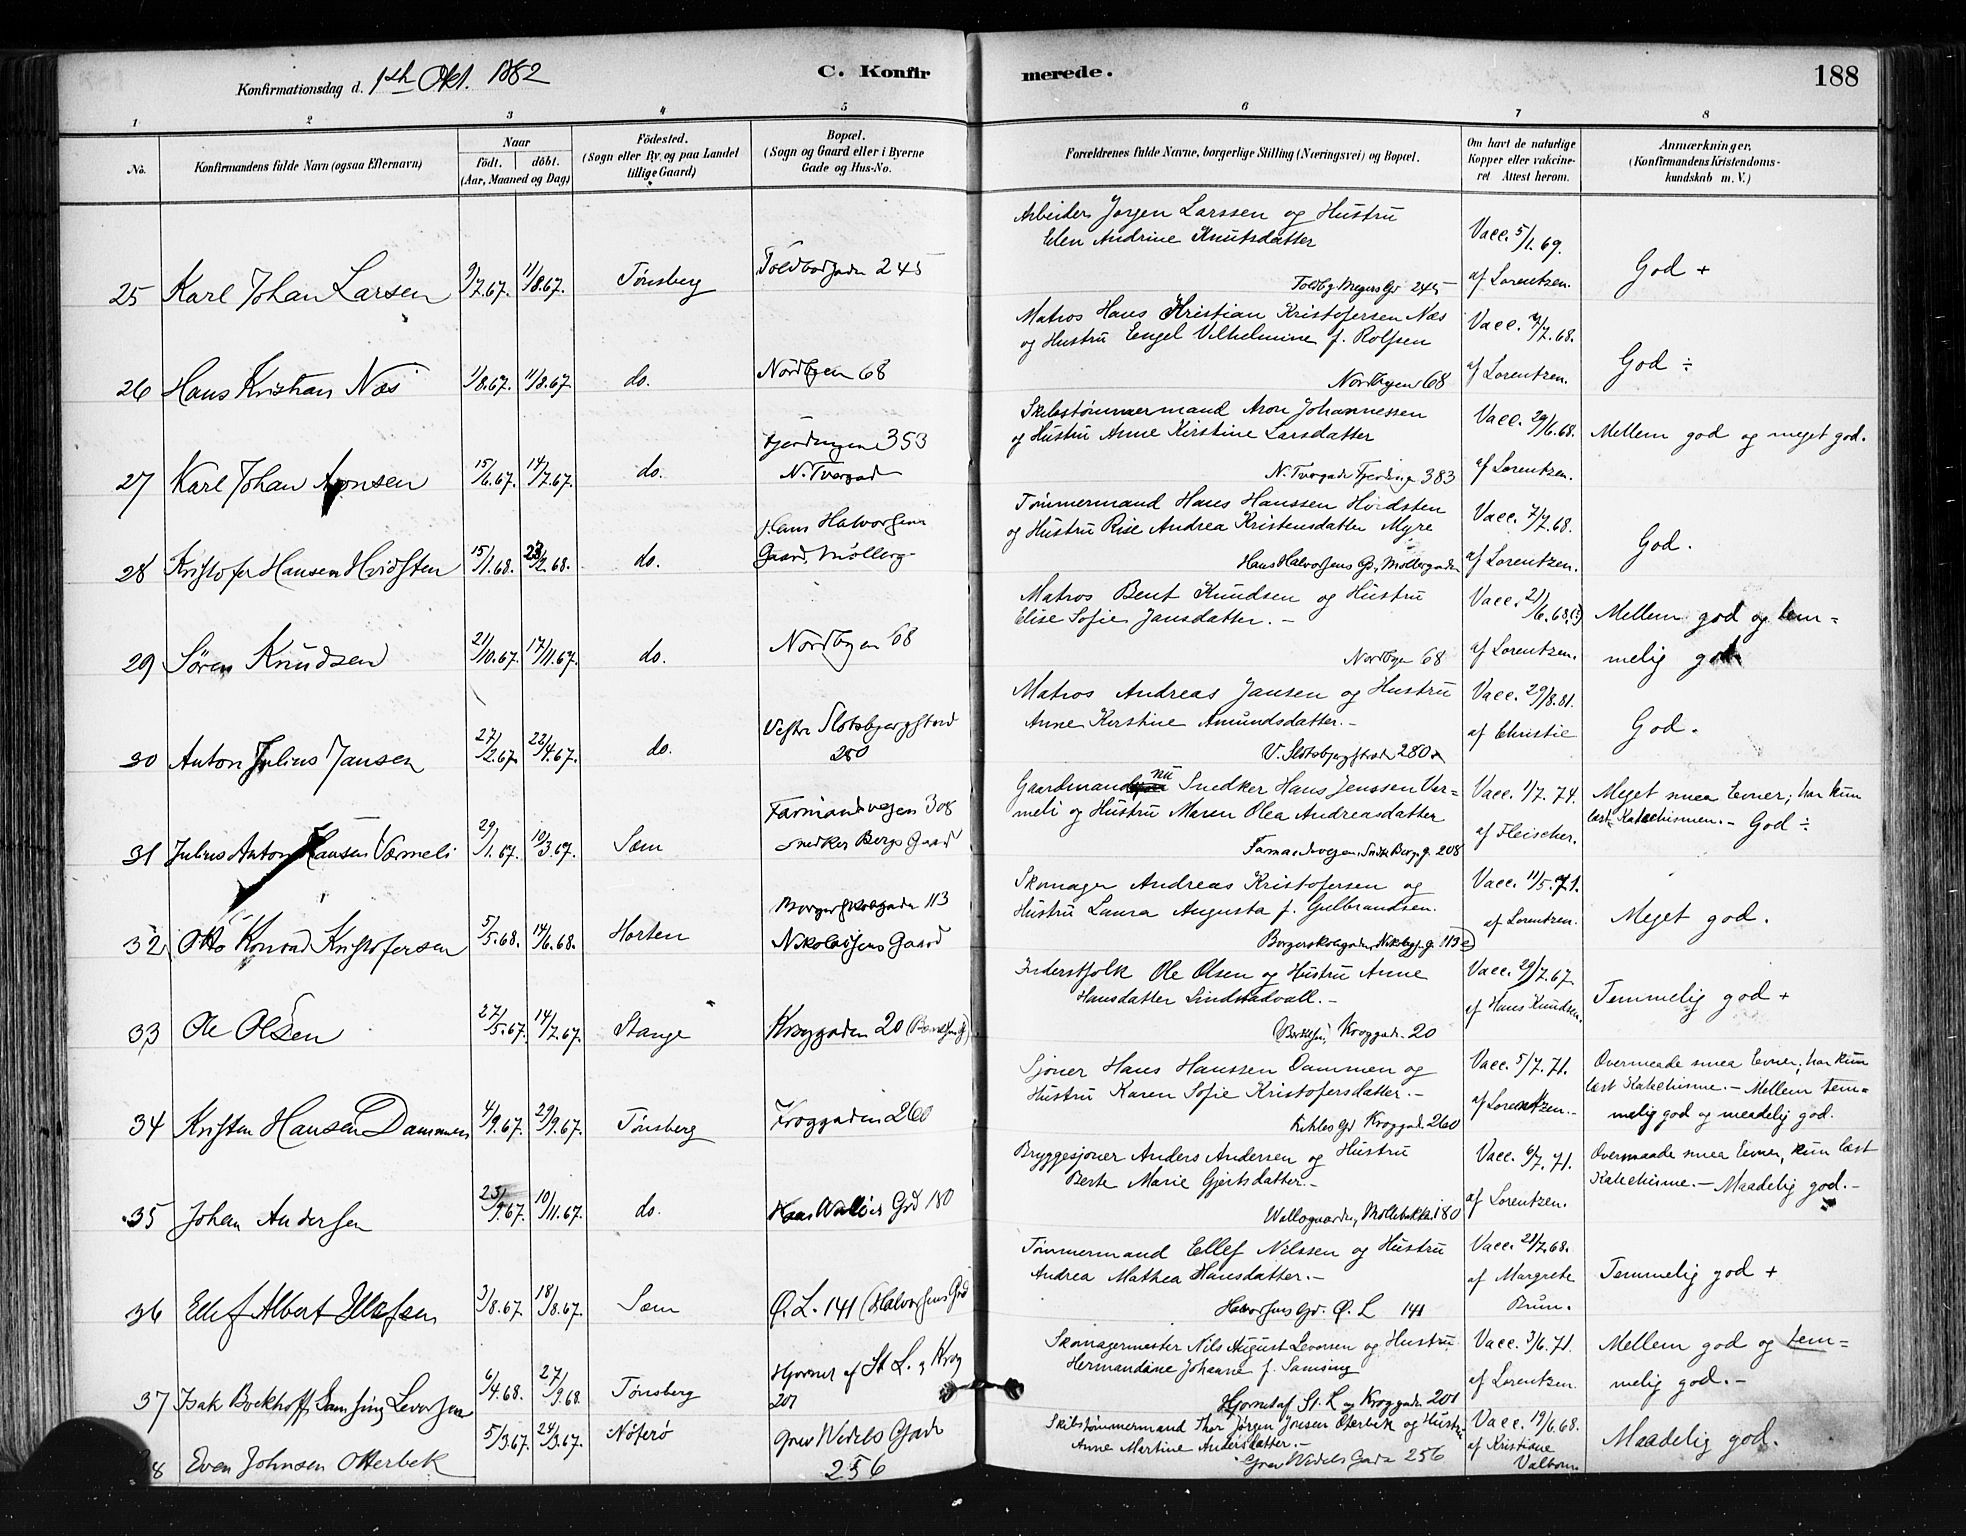 Konfirmationsdag d. 1ste Okt. 1882 C. Konfirmerede. 188
1 2 3 4 5 6 7 8
No. Konfirmandens fulde Navn (ogsaa Efternavn) Naar født. døbt. (Aar, Maaned og Dag) Fødested. (Sogn eller By og paa Landet tillige Gaard) Bopæl. (Sogn og Gaard eller i Byerne Gade og Hus-No. Forældrenes fulde Navne, borgerlige Stilling (Næringsvei) og Bopæl. Om havt de naturlige Kopper eller vakcineret Attest herom. Anmærkninger. (Konfirmandens Kristendomskundskab m. V.)
Arbeider Jørgen Larssen og Hustru
Elen Andrine Knutsdatter
25 Karl Johan Larsen 9/7.67. 11/8.67. Tønsberg Toldbodgaden 245 245 Vacc. 5/1.69. af Lorentzen. God +
Matros Hans Kristian Kristofersen Næs
og Hustru Engel Vilhelmine f. Rolfsen
26 Hans Kristian Næs 1/8.67. 11/8.67. do. Nordbyen 68 Nordbyen 68 Vacc. 7/7.68. af Lorentzen. God ÷
Skibstømmermand Aron Johannessen
og Hustru Anne Kirstine Larsdatter
27 Karl Johan Aronsen 15/6.67. 14/7.67. do. Fjerdingen 353 N. Tvergad N. Tvergade Fjerdingen 383 Vacc. 29/6.68. af Lorentzen. Mellem god og meget god.
Tømmermand Hans Hanssen Hvidsten
og Hustru Rise Andrea Kristensdatter Myre
28 Kristofer Hansen Hvidsten 15/1.68. 23/2.68. do. Hans Halvorsens Gaard, Møllerg. Hans Halvorsens Gd, Møllergaden Vacc. 7/7.68. af Lorentzen. God.
Matros Bent Knudsen og Hustru
Elise Sofie Jansdatter. –
29 Søren Knudsen 21/10.67. 17/11.67. do. Nordbyen 68 Nordbyen 68 Vacc. 21/6.68. af Lorentzen. Mellem god og temmelig god
Matros Andreas Jansen og Hustru
Anne Kirstine Amundsdatter. –
30 Anton Julius Jansen 27/2.67. 22/4.67. do. Vestre Slotsbjergstræd 280 V. Slotsbjergstræd 280 Vacc. 29/8.81. af Christie God.
Gaardmand nu Snedker Hans Jenssen Varmeli og Hustru Maren Olea Andreasdatter
31 Julius Anton Hansen Varmeli 29/1.67. 10/3.67. Sem Farmandsveien 308 Snedker Bergs Gaard Farmandsveien, Sndk Bergs g. 208 Vacc. 1/7.74. af Fleischer. Meget smaa Evner; har kun læst Katekismen. – God ÷
Skomager Andreas Kristofersen og
Hustru Laura Augusta f. Gulbrandsen.
32 Otto Konrad Kristofersen 5/5.68. 14/6.68. Horten Borgerskolegaden 113 Nikolaisens Gaard 113 Vacc. 11/5.71. af Lorentzen. Meget god.
Inderstfolk Ole Olsen og Hustru Anne
Hansdatter Lindstadvall. –
33 Ole Olsen 27/5.67. 14/7.67. Stange Kroggaden 20 Kroggad. 20 Vacc. 29/7.67. af Hans Knudsen. Temmelig god +
Sjøner Hans Hanssen Dammen og
Hustru Karen Sofie Kristofersdatter. –
34 Kristen Hansen Dammen 4/9.67. 29/9.67. Tønsberg Kroggaden 260 Gd Kroggad. 260 Vacc. 5/7.71. af Lorentzen. – Overmaade smaa Evner, har kun læst Katekisme. – Mellem temmelig god og maadelig god.
Bryggesjoner Anders Andersen og Hustru
Berte Marie Gjertsdatter. –
35 Johan Andersen 25/9.67. 10/11.67. do. Gd 180 180 Vacc. 6/7.71. af Lorentzen. Overmaade smaa Evner, kun læst Katekisme. – Maadelig god. –
Tømmermand Ellef Nilssen og Hustru
Andrea Mathea Hansdatter. –
36 Ellef Albert Ellefsen 3/8.67. 18/8.67. Sem Ø. L. 141 (Halvorsens Grd Halvorsens Gd. Ø. L 141 Vacc. 21/7.68. af Margrete Brun. Temmelig god +
Skomagermester Nils August Levorsen og Hustru
Hermandine Johanne f. Samsing
37 Isak Bockhoff Samsing Levorsen 6/4.68. 27/9.68. Tønsberg Hjørnet af St. L. og Krog 201 Hjørnet af St. L og Kroggad. 201 Vacc. 3/6.71. af Lorentzen. Mellem god og temmelig god. –
Skibstømmermand Thor Jørgen Jonsen Oterbek og Hustru
Anne Martine Andersdatter. –
38 Even Johnsen Otterbek 5/3.67. 24/3.67. Nøterø Grev Wedels Gade 256 Grev Wedels Gade 256 Vacc. 19/6.68. af Kristiane Valbom. Maadelig god.